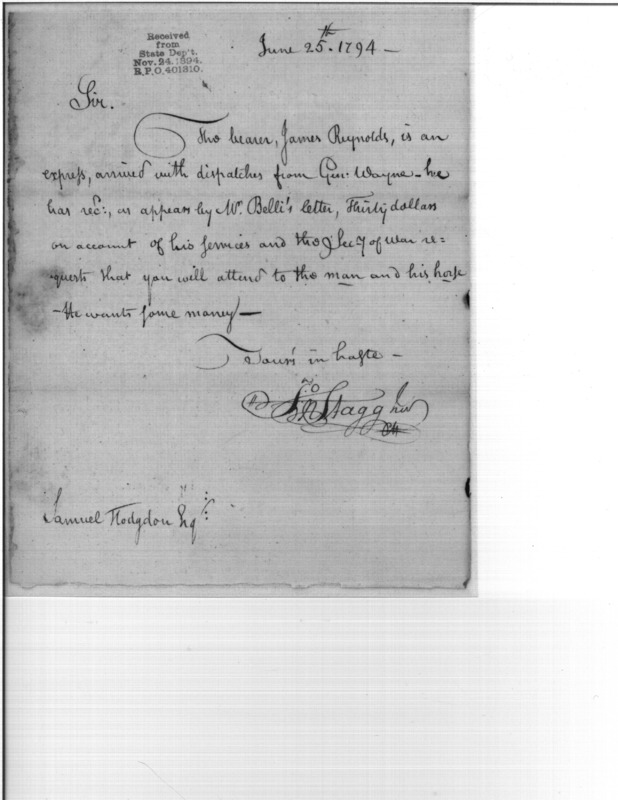 Received
from
State Dep't.
Nov. 24. 1894.
R.P.O. 401310.
June 25th. 1794 —
Sir.
The bearer, James Reynolds, is an
express, arrived with dispatches from Genl. Wayne – he
has recd:, as appears by Mr. Belli's letter, Thirty dollars
on account of his services and the Secy of War re=
quests that you will attend to the man and his horse
– He wants some money —
Yours in haste –
Jno Stagg Jnr
Samuel Hodgdon Esqr